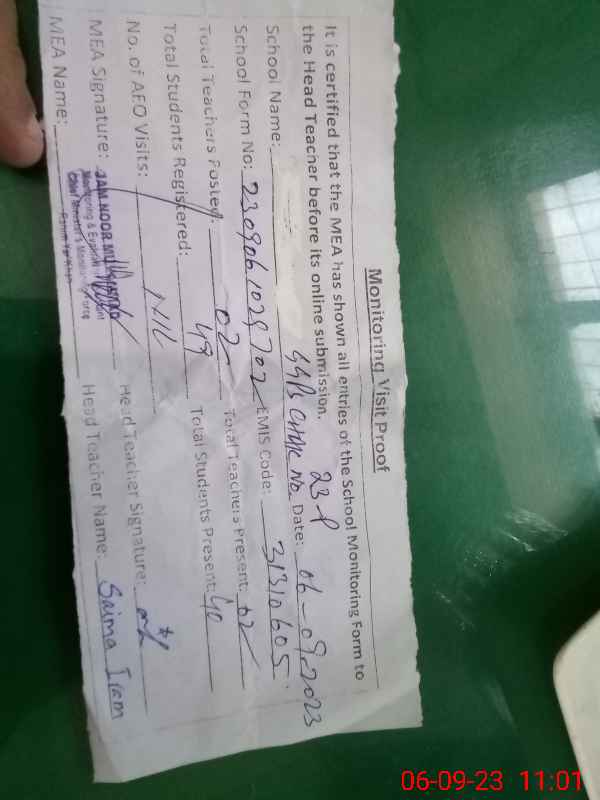 Monitoring Visit Proof
It is certified that the MEA has shown all entries of the School Monitoring Form to
the Head Teacher before its online submission.
School Name: CHAK No. 23-P Date: 06-09-2023
School Form No: 2309061029702 EMIS Code: 31310605
Total Teachers Posted: 02 Total Teachers Present: 02
Total Students Registered: 49 Total Students Present: 40
No. of AEO Visits: NIL
MEA Signature: Head Teacher Signature:
MEA Name: Head Teacher Name: Saima Iram
JAM NOOR MUHAMMAD
Monitoring & Evaluation
Chief Minister's Monitoring Force
06-09-23 11:01